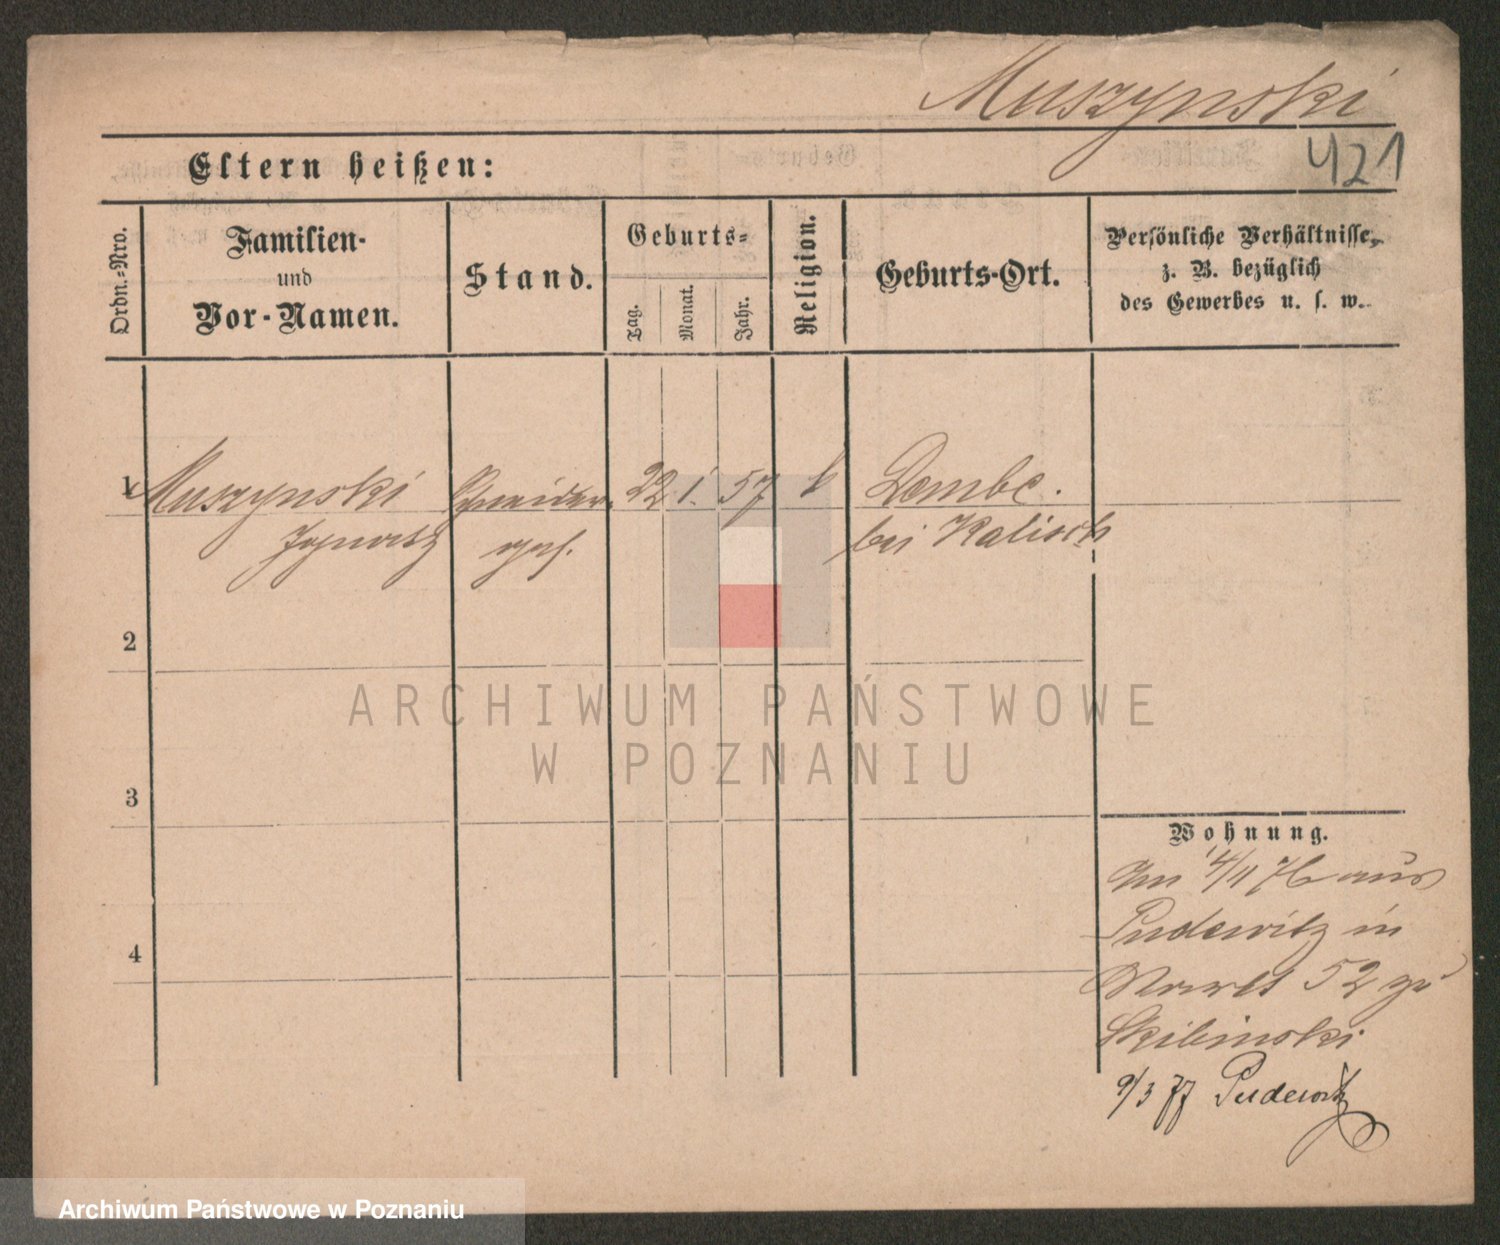 Muszynski
421
Eltern heißen:
Ordn.-Nro.
Familien-
und
Vor-Namen.
Stand.
Geburts-
Tag.
Monat.
Jahr.
Religion.
Geburts-Ort.
Persönliche Verhältnisse,
z. B. bezüglich
des Gewerbes u. s. w.
1 Muszynski Schneider 22 1. 57 k Dembe.
Ignatz bei Kalisch
2
3
4
Wohnung.
Im 4/11 76 aus
Pudewitz in
52 zu
Skibinski
9/3 77 Pudewitz
ARCHIWUM PAŃSTWOWE
W POZNANIU
Archiwum Państwowe w Poznaniu